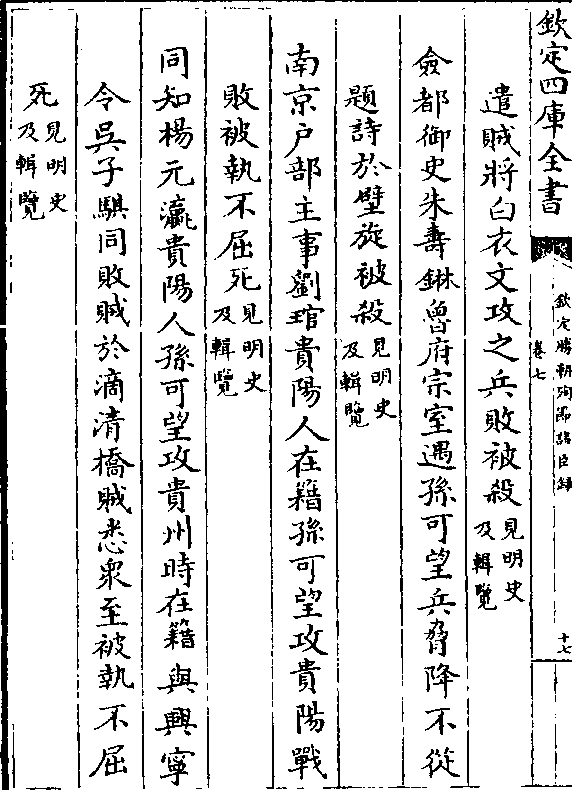 欽定四庫全書
欽定勝朝殉節諸臣錄
卷七
十七
遣賊將白衣文攻之兵敗被殺見明史及輯覽
僉都御史朱壽鉌魯府宗室遇孫可望兵脅降不從
題詩於壁旋被殺見明史及輯覽
南京户部主事劉琯貴陽人在籍孫可望攻貴陽戰
敗被執不屈死見明史及輯覽
同知楊元瀛貴陽人孫可望攻貴州時在籍與興寧
令吳子騏同敗賊於滴清橋賊悉衆至被執不屈
死見明史及輯覽